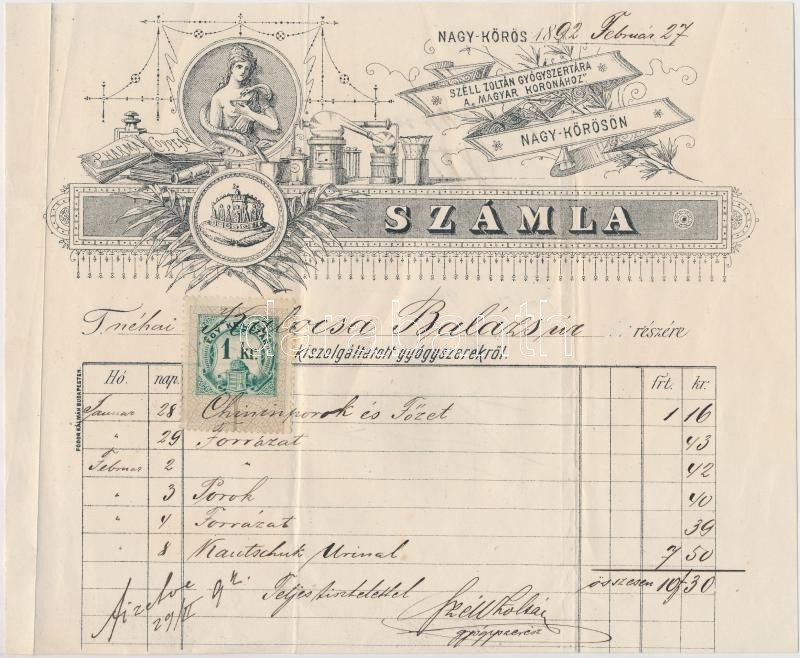 NAGY-KŐRÖS 1892 Február 27
SZÉLL ZOLTÁN GYÓGYSZERTÁRA
A „MAGYAR KORONÁHOZ”
NAGY-KŐRÖSÖN
SZÁMLA
T. néhai Balázs úr részére
kiszolgáltatott gyógyszerekről.
EGY KR.
1 kr.
FODOR KÁLMÁN BUDAPESTEN
Hó. nap. frt. kr.
Januar 28 Chininporok és Főzet 1 16
" 29 Forrázat 43
Februar 2 " 42
" 3 Porok 40
" 4 Forrázat 39
" 8 Kautschuk Urinal 7 50
összesen 10f 30
Teljes tisztelettel
Fizetve
29/II 92.
Széll Zoltán
gyógyszerész